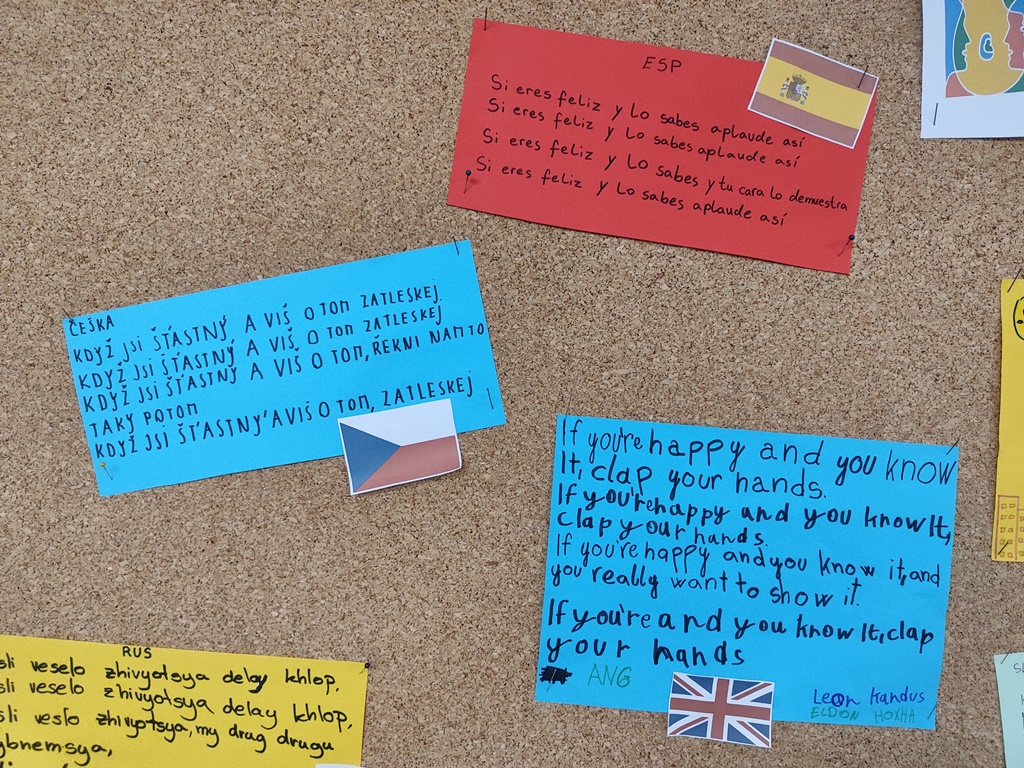 ESP
Si eres feliz y Lo sabes aplaude así
Si eres feliz y Lo sabes aplaude así
Si eres feliz y Lo sabes y tu cara lo demuestra
Si eres feliz y Lo sabes aplaude así
ČEŠKA
KDYŽ JSI ŠŤASTNÝ A VIŠ O TOM ZATLESKEJ.
KDYŽ JSI ŠŤASTNÝ A VIŠ, O TOM ZATLESKEJ
KDYŽ JSI ŠŤASTNÝ A VIŠ O TOM, ŘEKNI NAM TO
TAKY POTOM
KDYŽ JSI ŠŤASTNÝ A VIŠ O TOM, ZATLESKEJ
If you're happy and you know
It, clap your hands.
If you're happy and you know It,
clap your hands.
If you're happy and you know it, and
you really want to show it.
If you're and you know It, clap
your hands
ANG
Leon Kandus
ELDON HOXHA
RUS
sli veselo zhivyotsya delay khlop,
sli veselo zhivyotsya delay khlop,
sli veslo zhivyotsya, my drug drugu
ybnemsya,